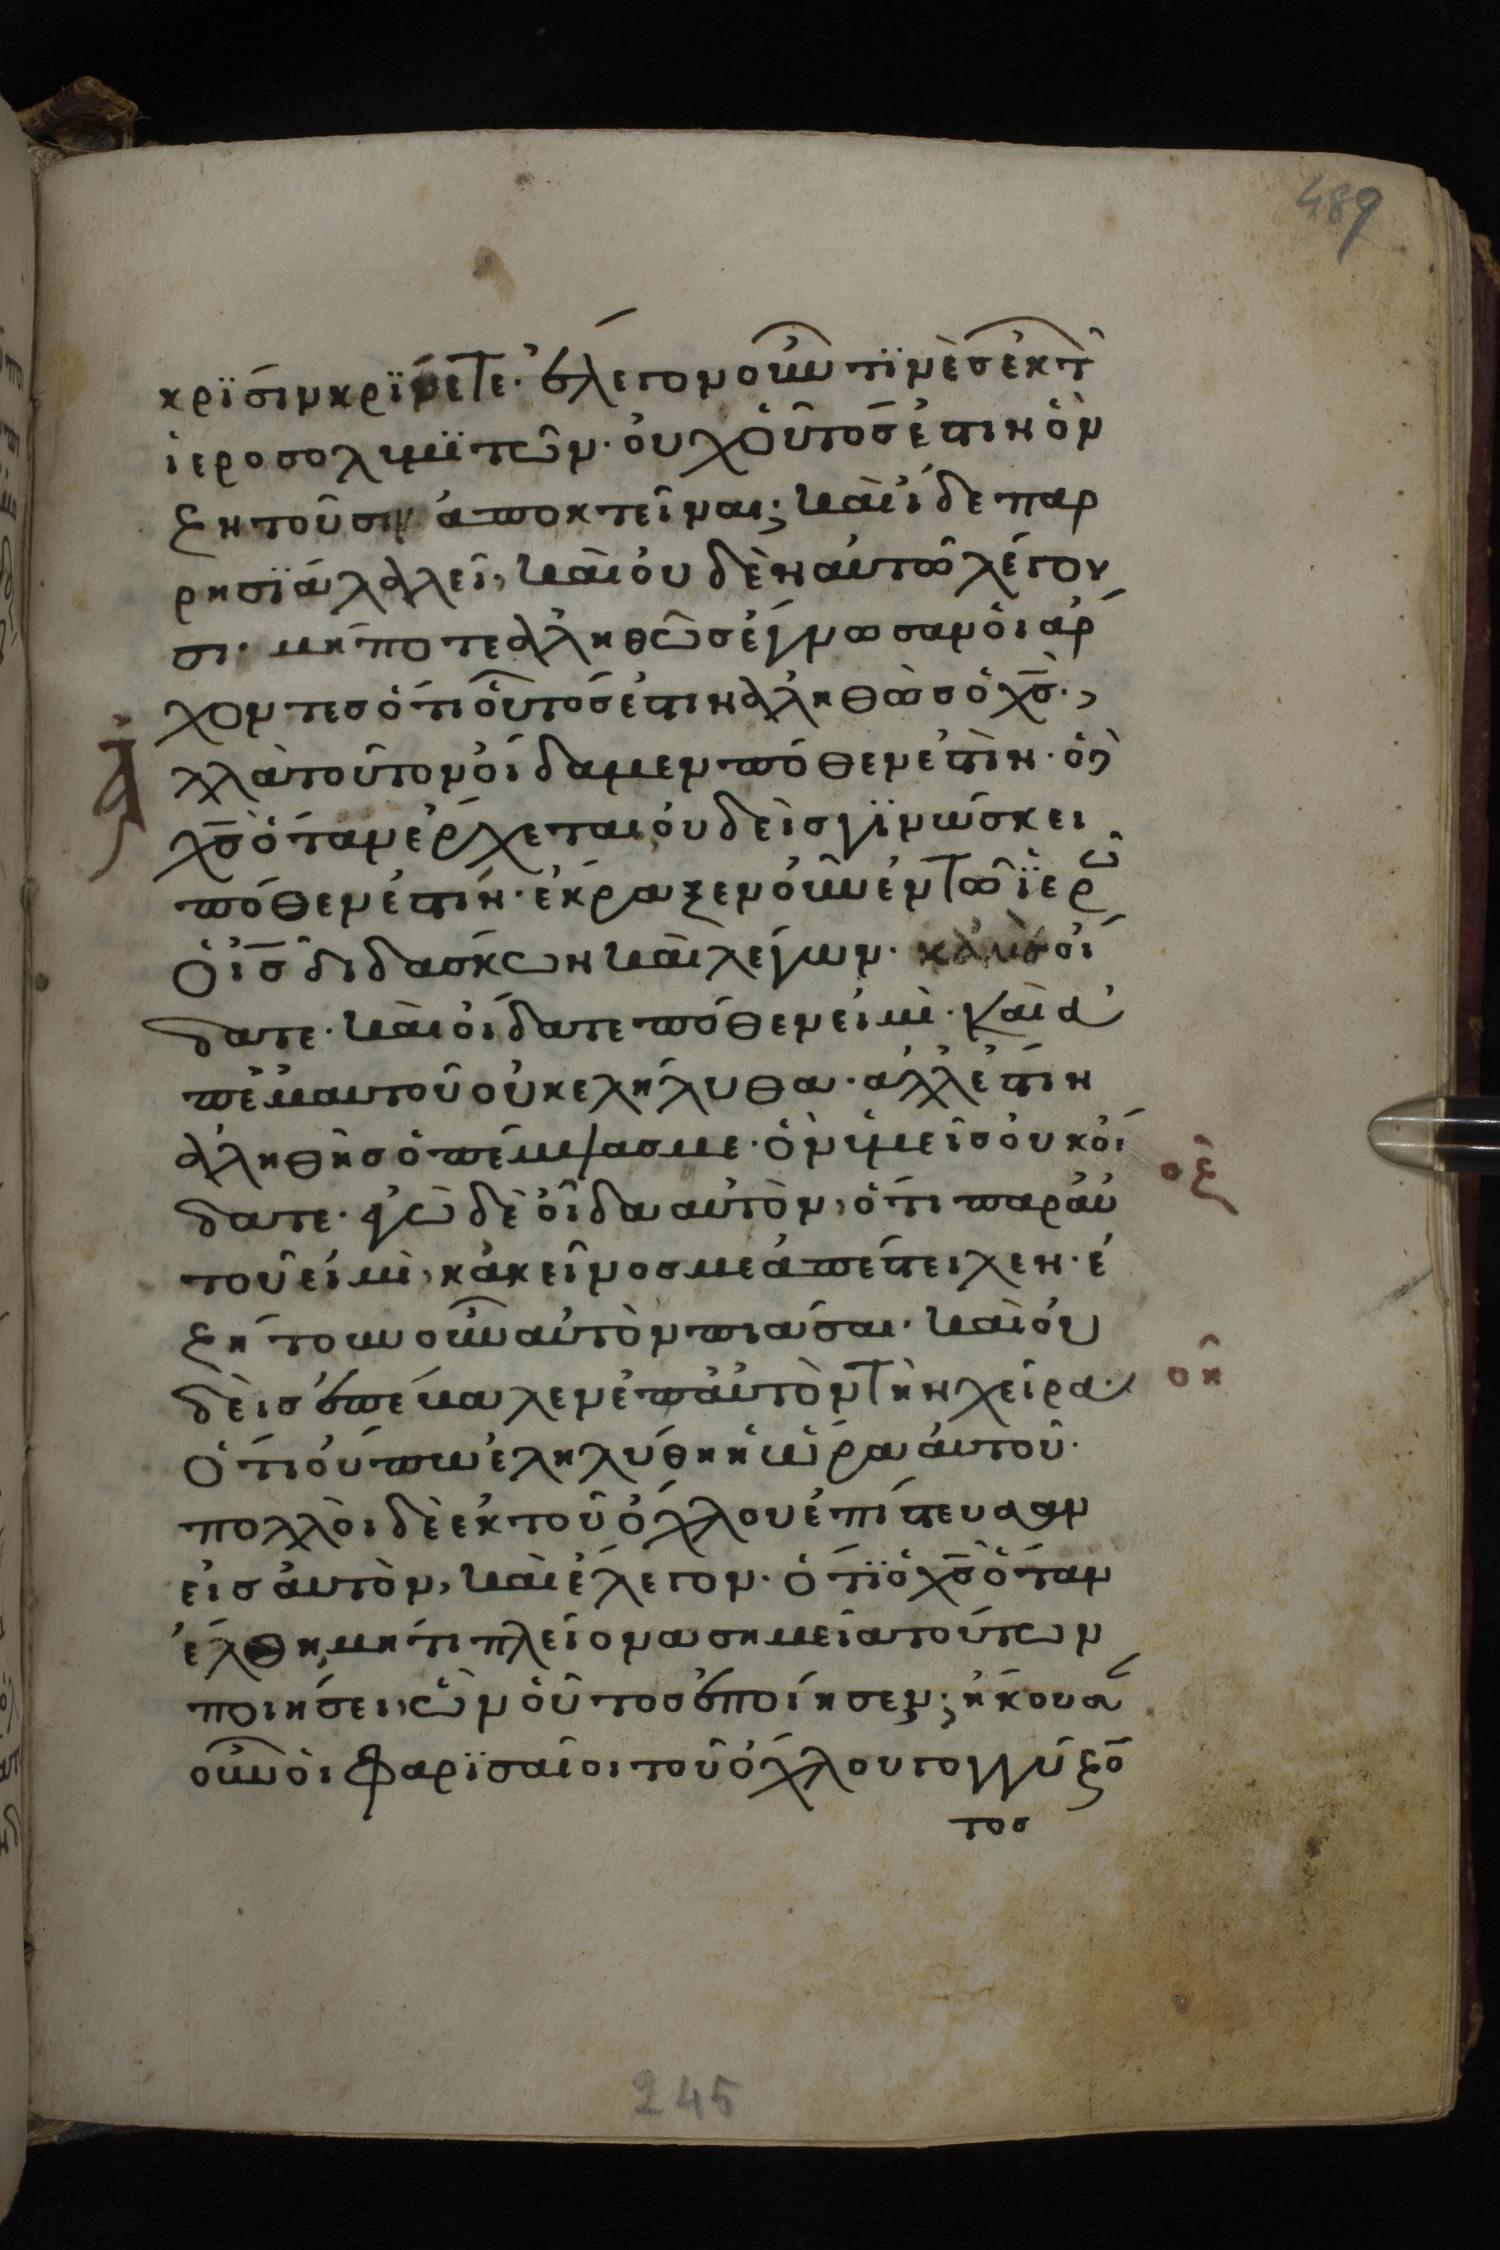 489
κρϊσιν κρϊνετε· ἔλεγον οὖν τϊνὲς ἐκ τῶ
ἱεροσολυμϊτῶν· οὐχ οὗτος ἐστιν ὃν
ζητοῦσιν ἀποκτεῖναι; καὶ ἴδε παρ
ρησϊα λαλεῖ, καὶ οὐδὲν αὐτῶ λέγου
σι· μήποτε ἀληθῶς ἔγνωσαν ὁι ἄρ
χοντες ὅτι οὗτος ἐστιν ἀληθῶς ὁ χς·,
ἀλλὰ τοῦτον οἴδαμεν πόθεν ἐστὶν· ὁ δὲ
χς ὅταν ἔρχεται οὐδεὶς γϊνώσκει
πόθεν ἐστίν· ἔκραξεν οὖν ἐν τῶ ϊερῶ
ὁ ις διδάσκων καὶ λέγων· κἀμὲ οἴ
δατε· καὶ οἴδατε πόθεν εἰμὶ· καὶ ἀ
π' ἐμαυτοῦ οὐκ ελήλυθα· ἀλλ' ἔστιν
ἀληθὴς ὁ πέμψας με· ὃν ὑμεῖς οὐκ οἴ
δατε· ἐγὼ δὲ οἶδα αὐτὸν, ὅτι παρ' αὐ
τοῦ εἰμὶ, κἀκεῖνος με ἀπέστειλεν· ἐ
οξ
ζήτουν οὖν αὐτὸν πιάσαι· καὶ οὐ
δεὶς ἐπέβαλεν ἐπ' αὐτὸν τὴν χεῖρα·
οη
ὅτι οὔπω ἐληλύθη ἡ ὥρα αὐτοῦ·
πολλοὶ δὲ ἐκ τοῦ ὄχλου ἐπίστευσαν
εἰς αὐτὸν, καὶ ἔλεγον· ὅτϊ ὁ χς ὅταν
ἔλθη, μήτι πλείονα σημεῖα τούτων
ποιήσει, ὧν οὗτος ἐποίησεν; ἤκουσα
οὖν ὁι φαρϊσαῖοι τοῦ ὄχλου γογγύζο
τος
245